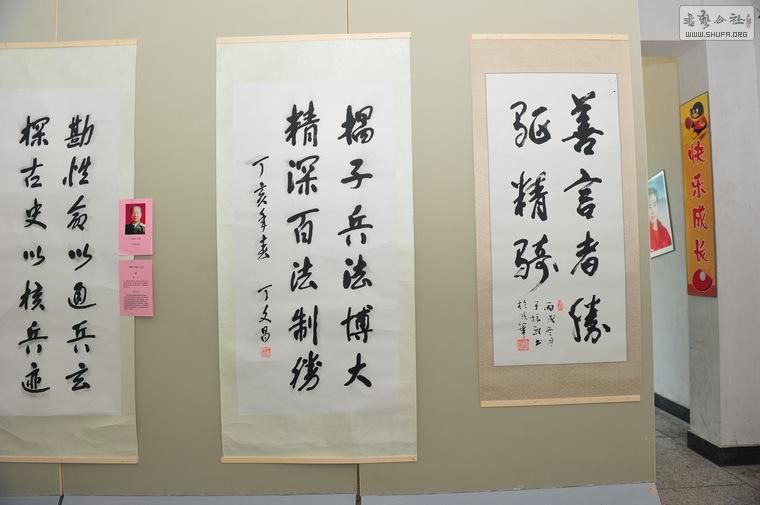 書藝公社
WWW.SHUFA.ORG
勘性命以通兵玄
探古史以核兵迹
楊子兵法博大
精深百法制勝
丁亥年春 丁文昌
善言者勝
驱精骑
丙戌冬月
快乐成长